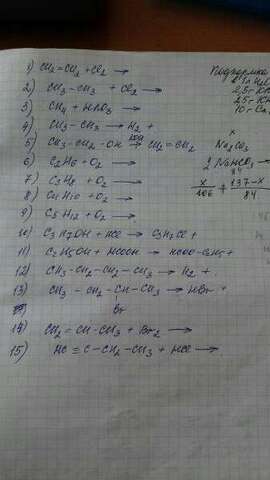 1) CH2=CH2 + Cl2 →
2) CH3-CH3 + Cl2 →
3) CH4 + HNO3 →
4) CH3-CH3 → H2 +
5) CH3-CH2-OH → CH2=CH2
6) C2H6 + O2 →
7) C3H8 + O2 →
8) C4H10 + O2 →
9) C5H12 + O2 →
10) C3H7OH + HCl → C3H7Cl +
11) C2H5OH + HCOOH →
12) CH3-CH2-CH2-CH3 → H2 +
13) CH3-CH2-CH-CH3 → HBr +
Br
14) CH2=CH-CH3 + Br2 →
15) HC≡C-CH2-CH3 + HCl →
Подкормка
x
Na2CO3
2 NaHCO3 →
84
x/106 + 137-x/84